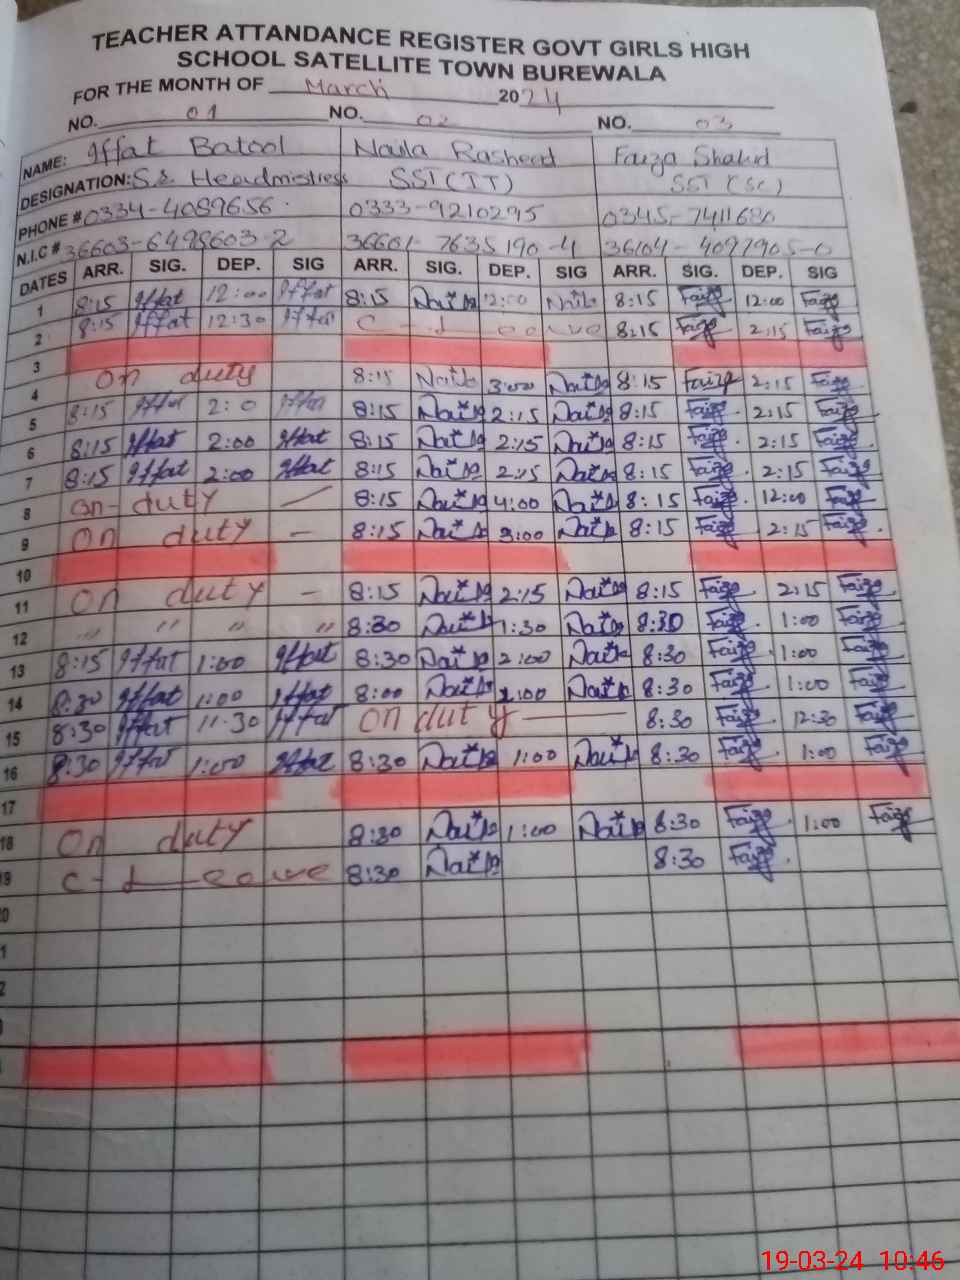 TEACHER ATTANDANCE REGISTER GOVT GIRLS HIGH
SCHOOL SATELLITE TOWN BUREWALA
FOR THE MONTH OF March 2024
NO. 01 NO. 02 NO. 03
NAME: Iffat Batool Naila Rasheed Faiza Shahid
DESIGNATION: S.S. Headmistress SST(IT) SST (SC)
PHONE # 0334-4089656 0333-9210295 0345-7411680
N.I.C # 36603-6498603-2 36601-7635190-4 36104-4097905-0
DATES ARR. SIG. DEP. SIG ARR. SIG. DEP. SIG ARR. SIG. DEP. SIG
1 8:15 Iffat 12:00 Iffat 8:15 Naila 12:00 Naila 8:15 Faiza 12:00 Faiza
2 8:15 Iffat 12:30 Iffat C-Leave 8:15 Faiza 2:15 Faiza
3
4 On duty 8:15 Naila 3:00 Naila 8:15 Faiza 2:15 Faiza
5 8:15 Iffat 2:0 Iffat 8:15 Naila 2:15 Naila 8:15 Faiza 2:15 Faiza
6 8:15 Iffat 2:00 Iffat 8:15 Naila 2:15 Naila 8:15 Faiza 2:15 Faiza
7 8:15 Iffat 2:00 Iffat 8:15 Naila 2:15 Naila 8:15 Faiza 2:15 Faiza
8 On-duty 8:15 Naila 4:00 Naila 8:15 Faiza 12:00 Faiza
9 On duty - 8:15 Naila 3:00 Naila 8:15 Faiza 2:15 Faiza
10
11 On duty - 8:15 Naila 2:15 Naila 8:15 Faiza 2:15 Faiza
12 " " " " 8:30 Naila 1:30 Naila 8:30 Faiza 1:00 Faiza
13 8:15 Iffat 1:00 Iffat 8:30 Naila 2:00 Naila 8:30 Faiza 1:00 Faiza
14 8:30 Iffat 1:00 Iffat 8:00 Naila Naila 8:30 Faiza 1:00 Faiza
15 8:30 Iffat 11:30 Iffat On duty 8:30 Faiza 12:30 Faiza
16 8:30 Iffat 1:00 Iffat 8:30 Naila 1:00 Naila 8:30 Faiza 1:00 Faiza
17
18 On duty 8:30 Naila 1:00 Naila 8:30 Faiza 1:00 Faiza
9 C-Leave 8:30 Naila 8:30 Faiza
0
1
2
19-03-24 10:46